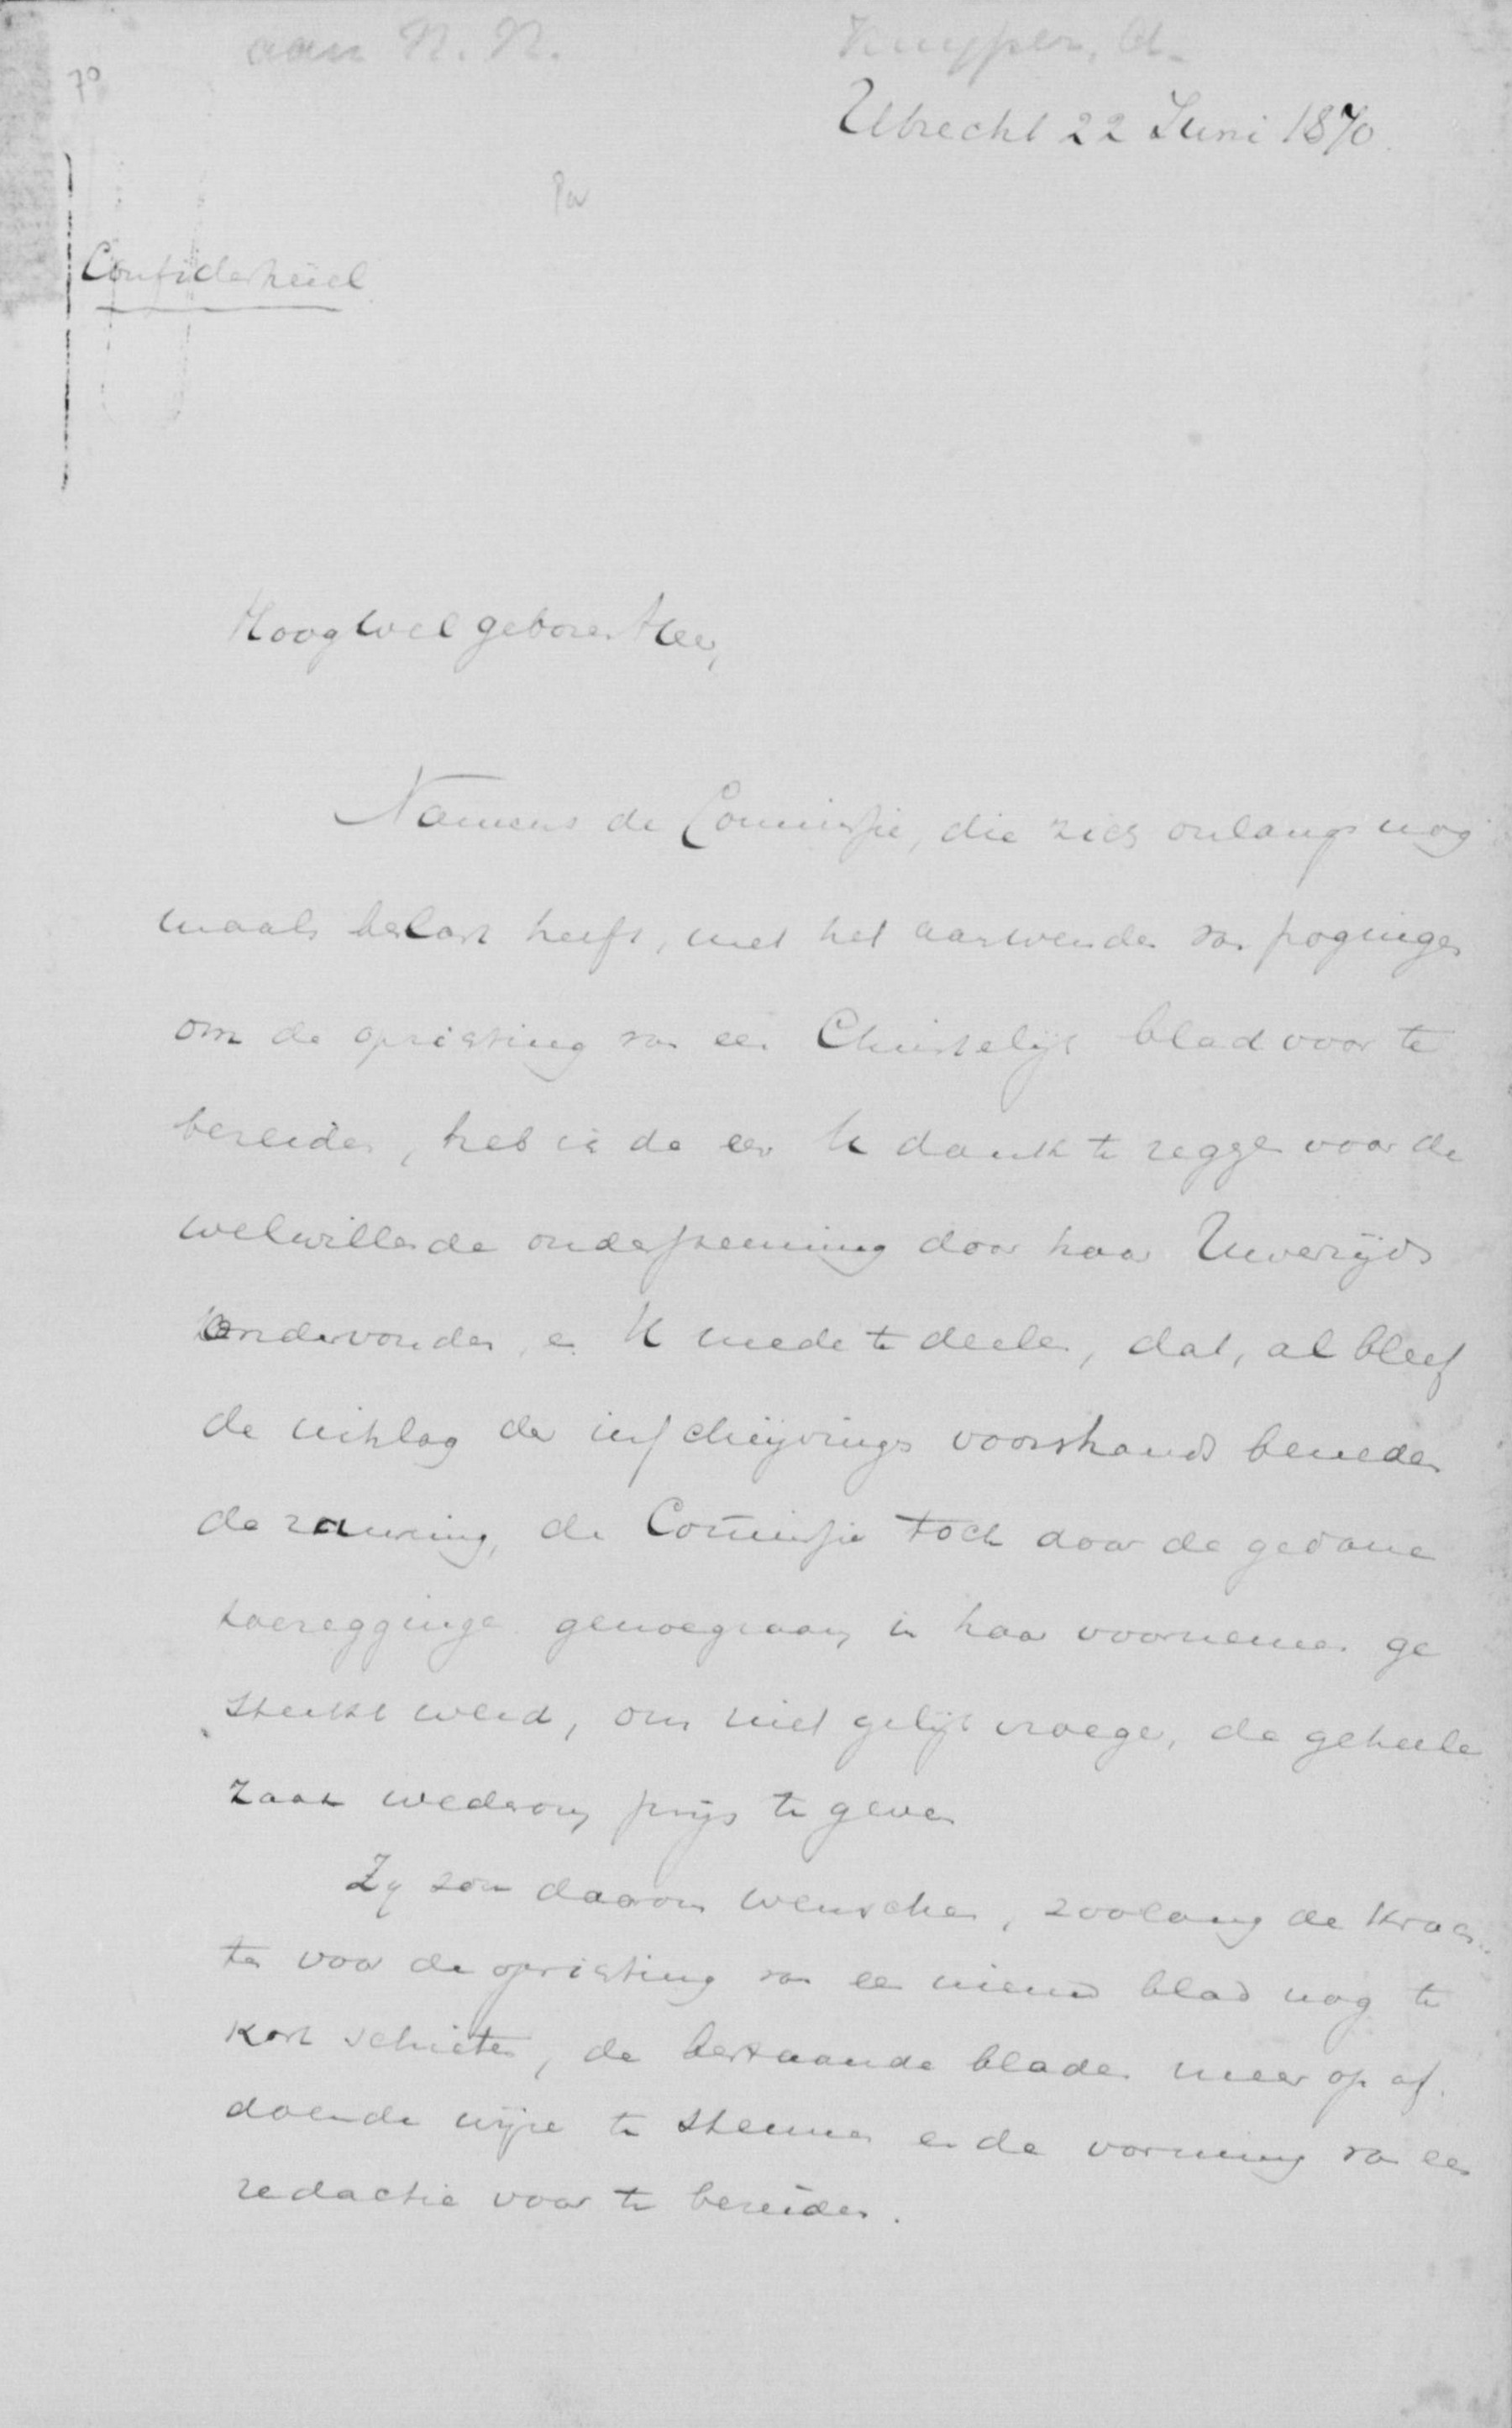 aan N.N.
Kuyper, A.
70
Utrecht 22 Juni 1870.
Confidentieel
Hoogwelgeboren Heer,
Namens de Commissie, die zich onlangs nog
maals belast heeft, met het aanwenden van pogingen
om de oprichting van een Christelijk blad voor te
bereiden, heb ik de eer U dank te zeggen voor de
welwillende ondersteuning door haar Uwerzijds
ondervonden, en U mede te deelen, dat, al bleef
de uitslag der inschrijvings voorshands beneden
de raming, de Commissie toch door de gedane
toezegginge genoegzaam in haar voornemen ge
sterkt werd, om niet gelijk vroeger, de geheele
zaak wederom prijs te geven
Zy zou daarom wenschen, zoolang de krach
ten voor de oprichting van een nieuw blad nog te
kort schieten, de bestaande bladen meer op af
doende wijze te steunen en de vorming van een
redactie voor te bereiden.